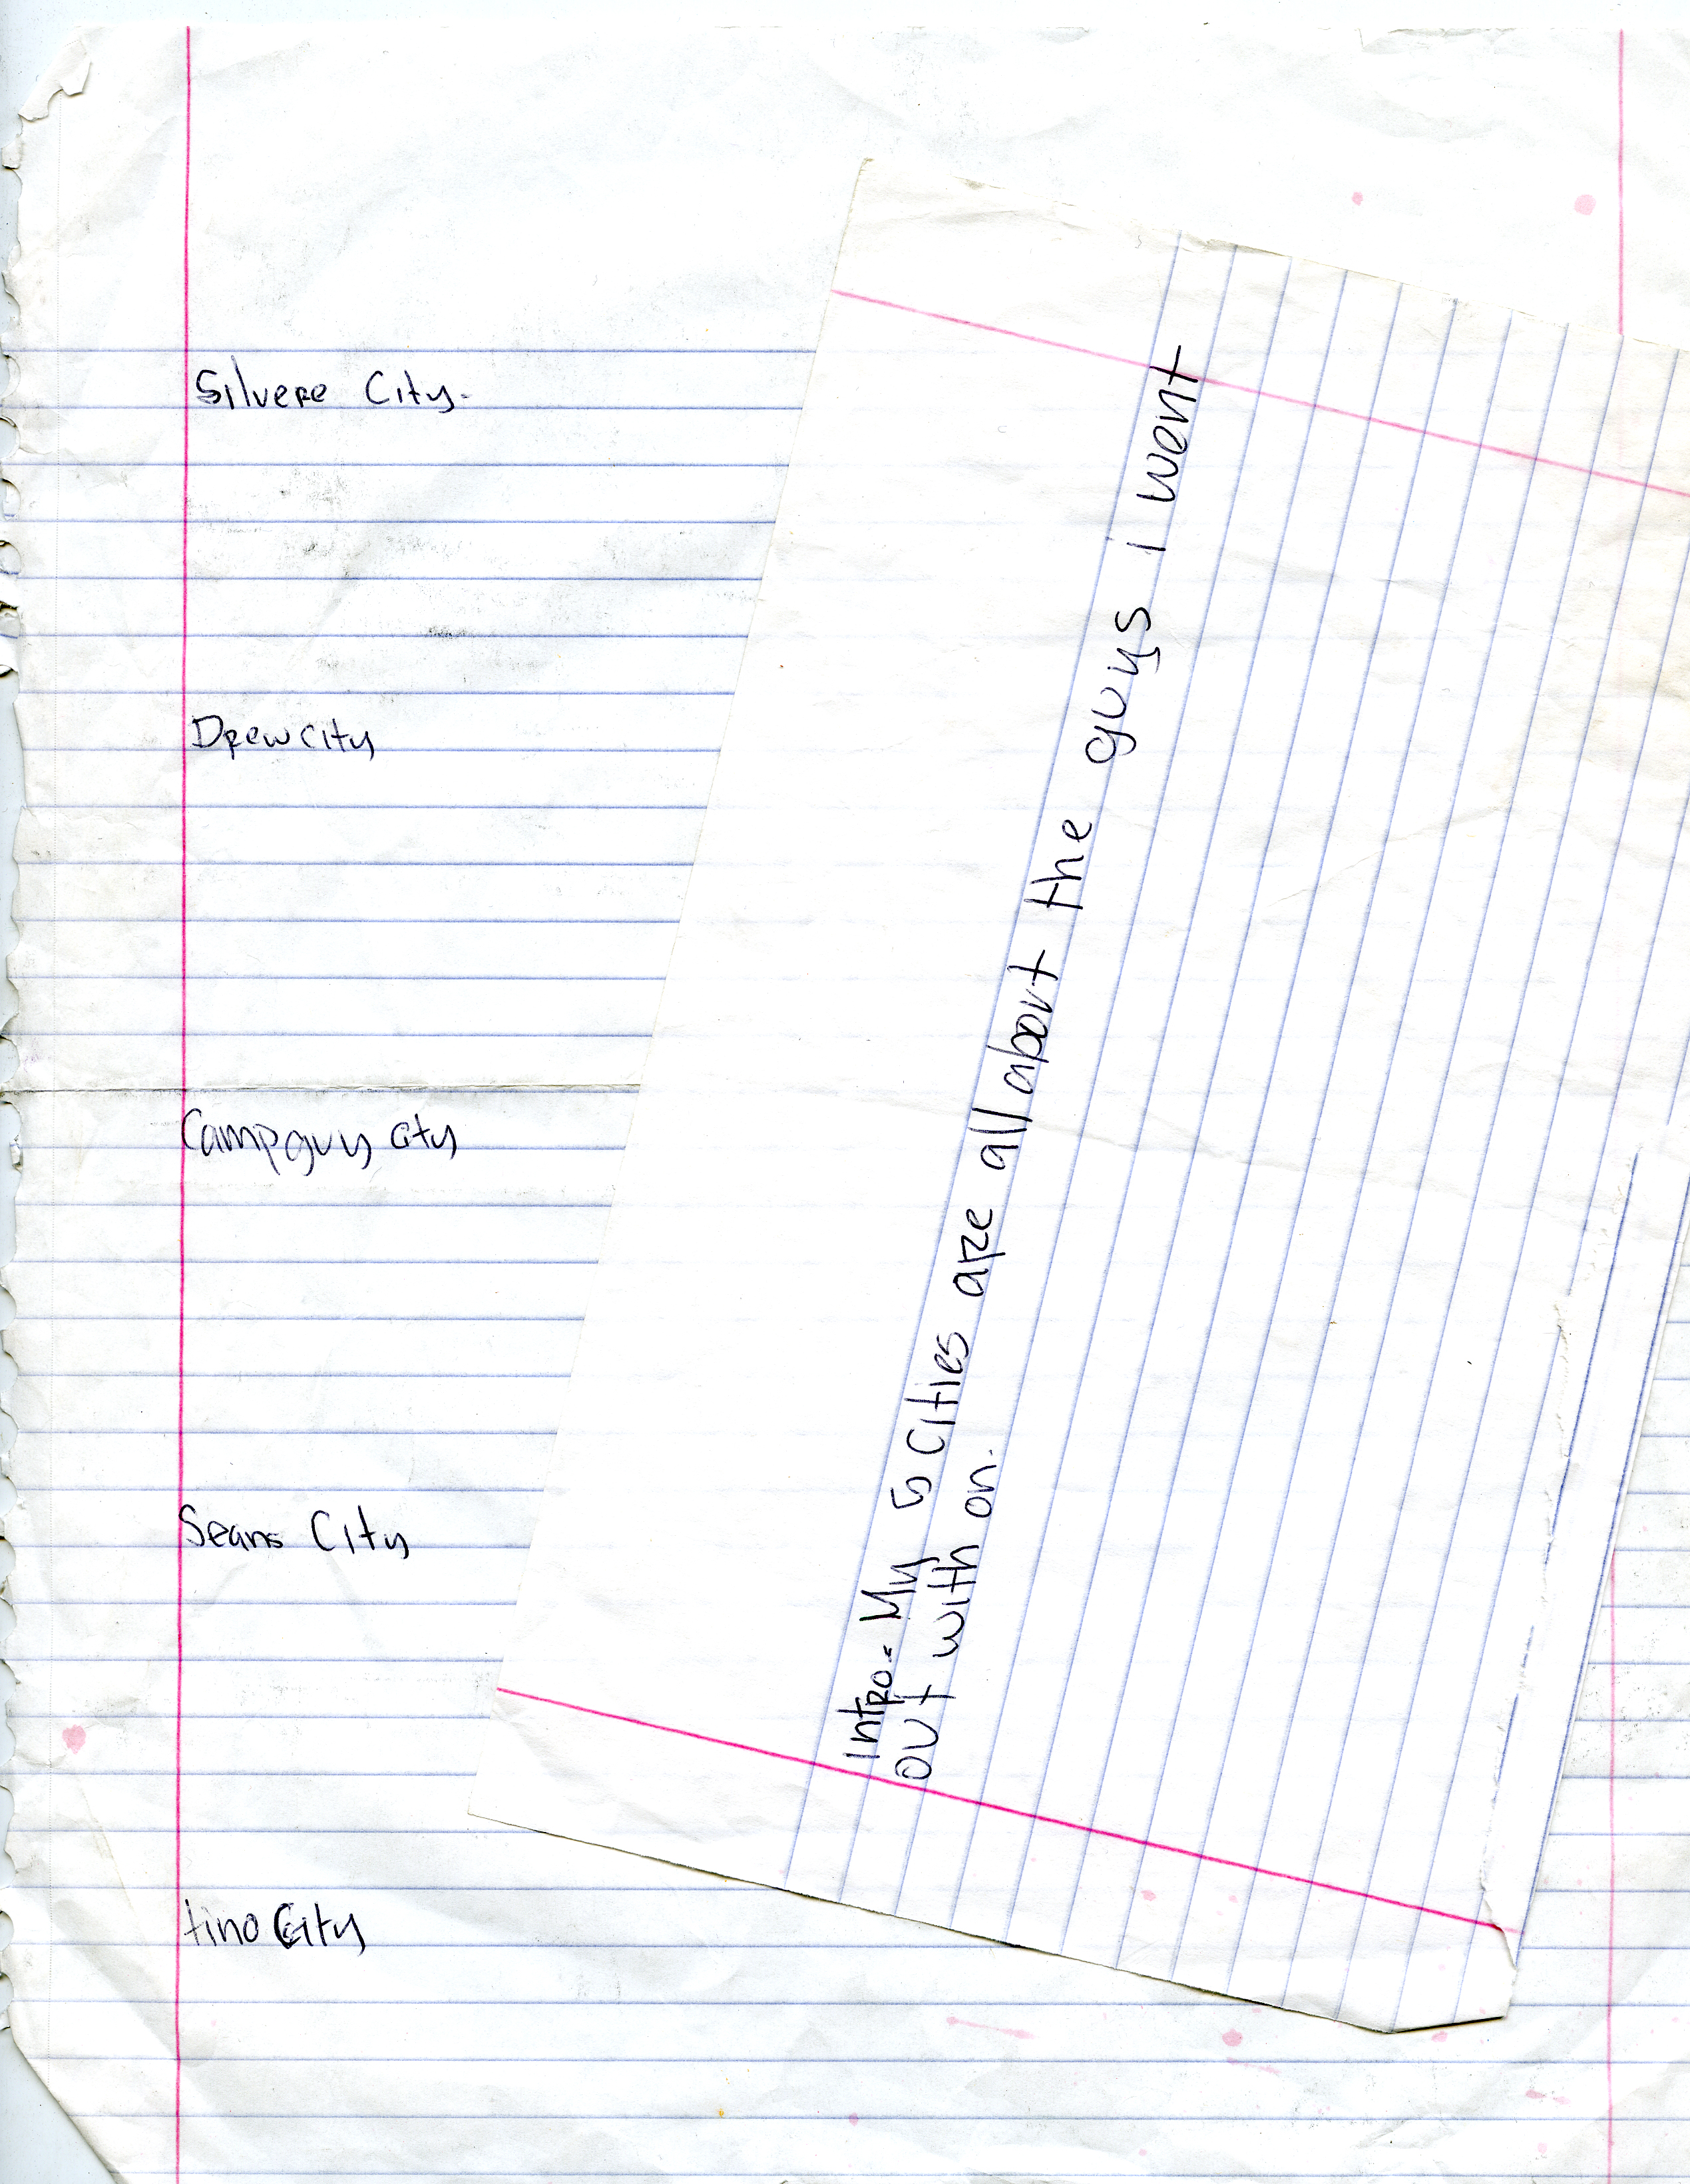 Silvere City-
Drew City
Campguy City
Seans City
tino City
Intro- My 5 Cities are all about the guys i went
out with on.